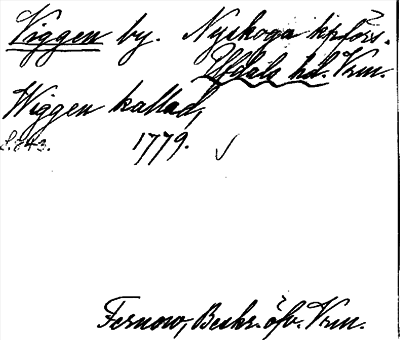 Viggen by. Nyskoga kpförs.
Älvdals hd. Vrm.
Wiggen kallad,
S. 843. 1779. ✓
Fernow, Beskr. öfv. Vrm.